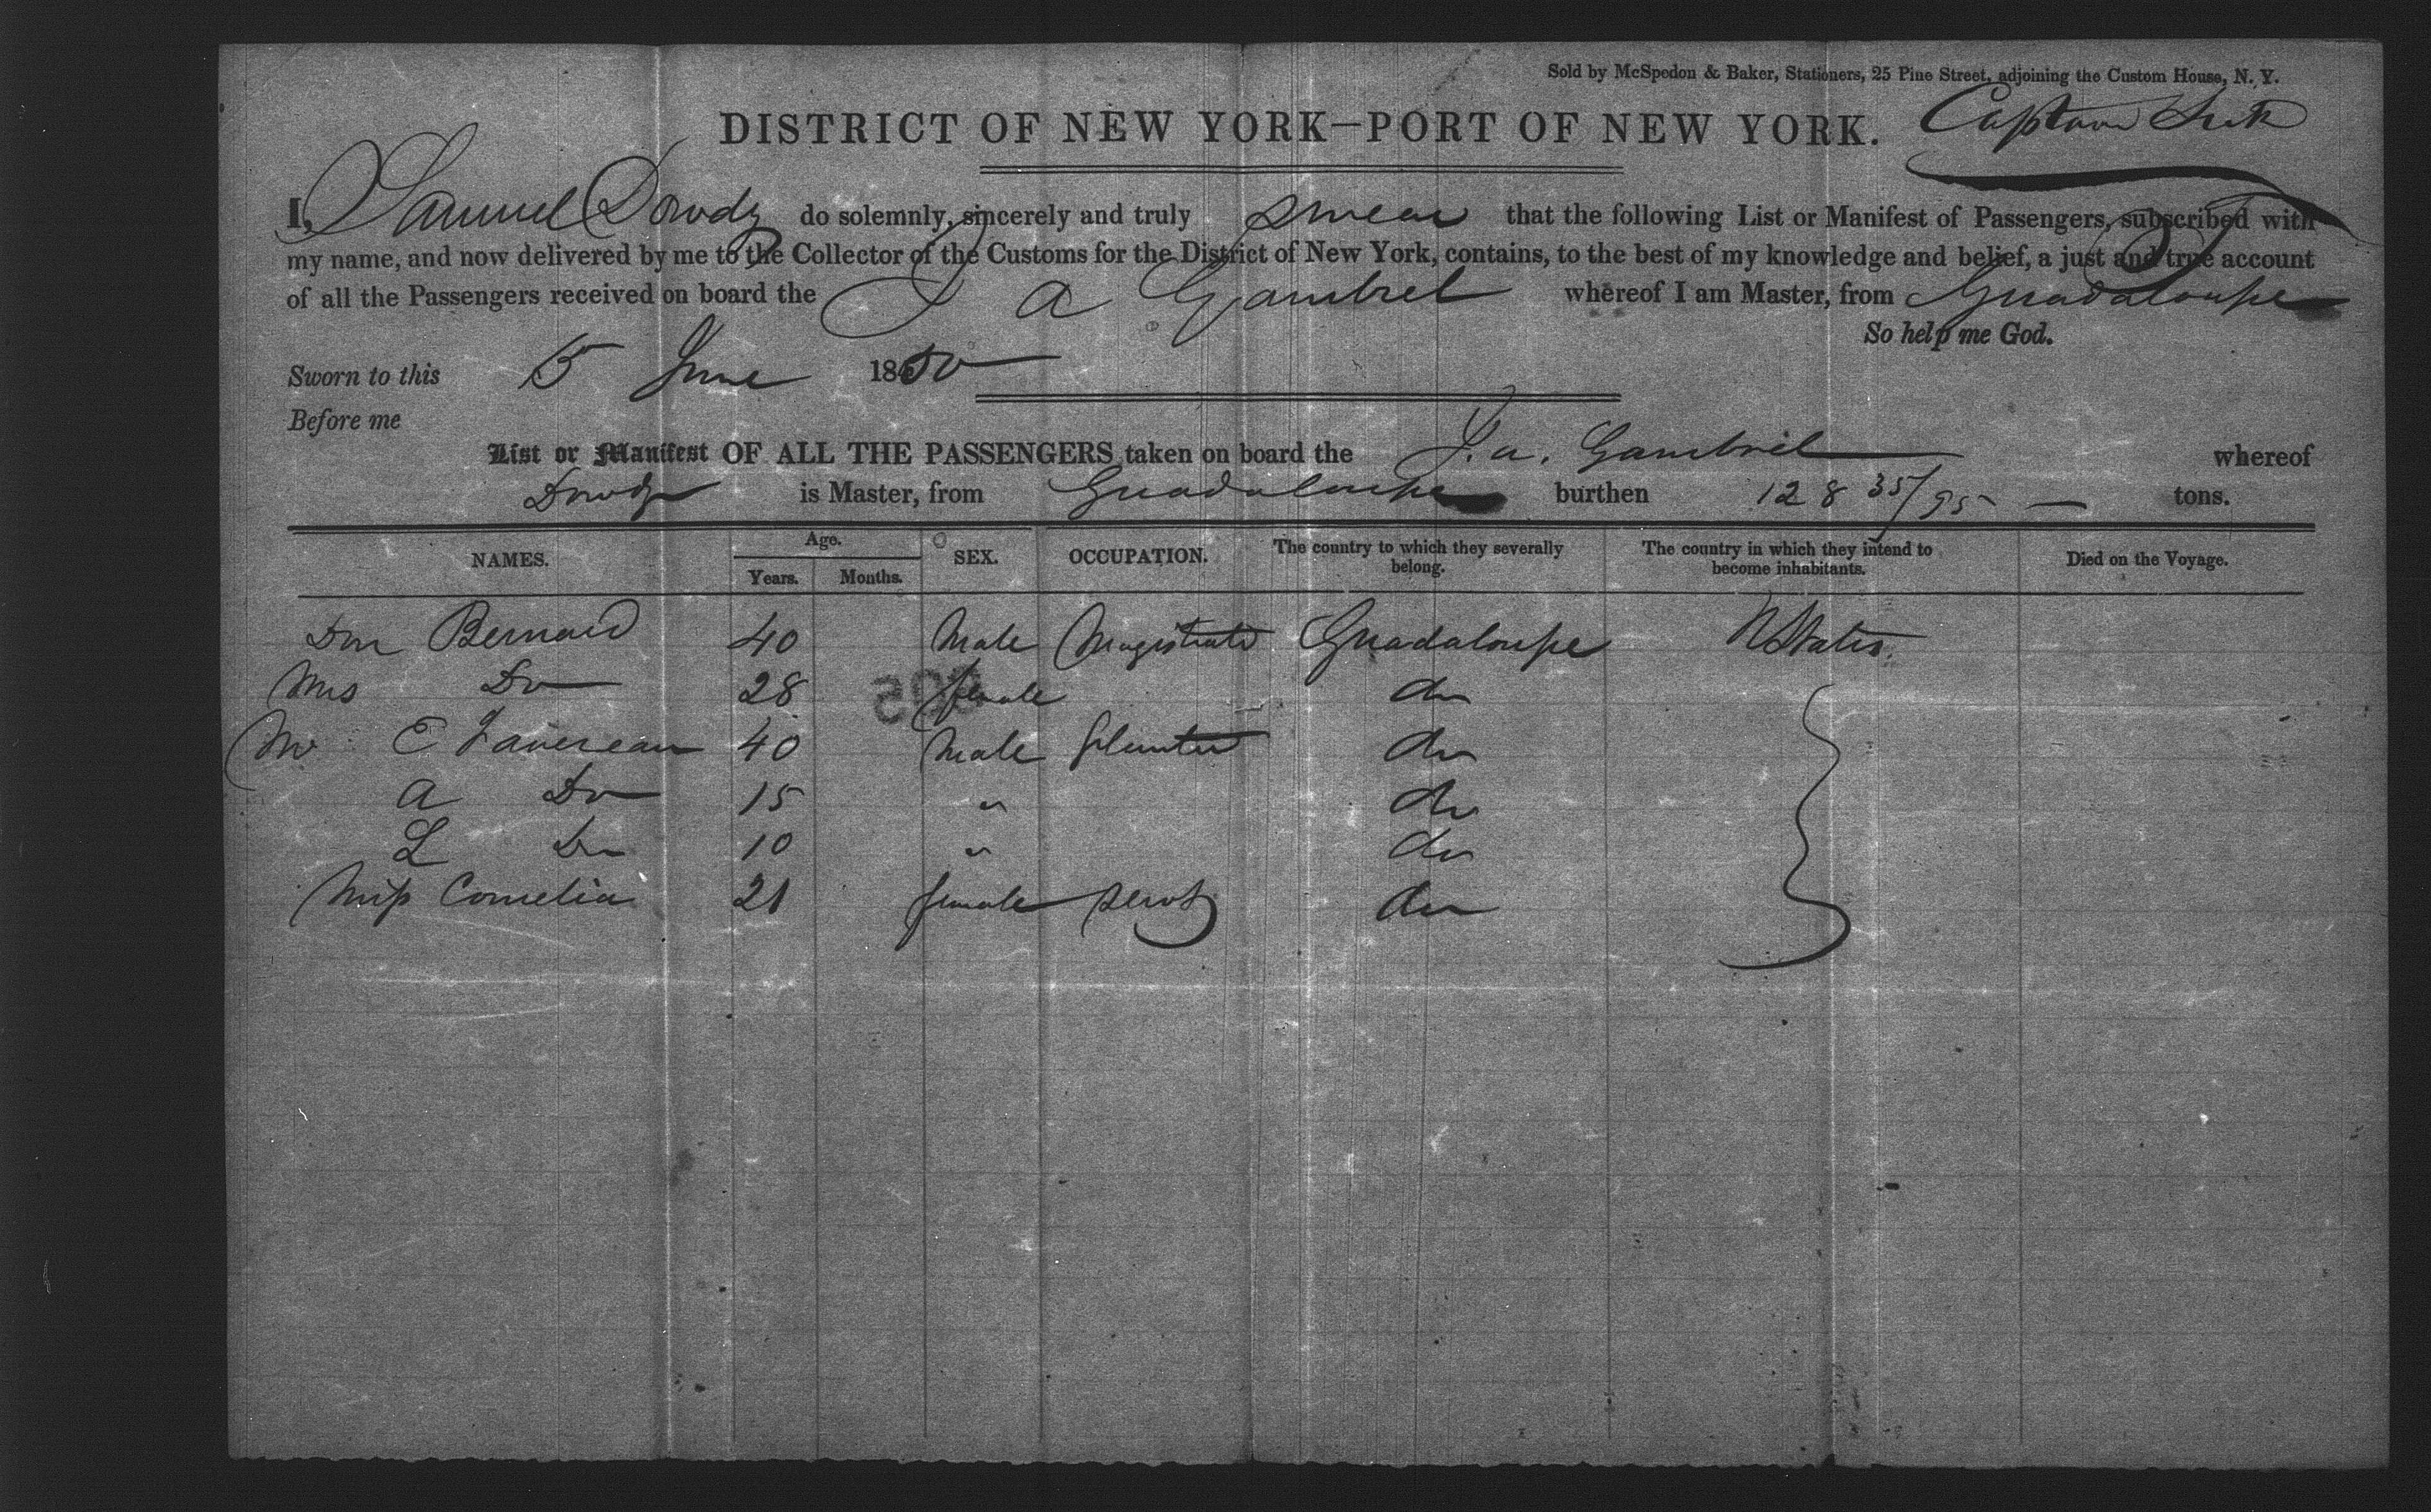 Sold by McSpedon & Baker, Stationers, 25 Pine Street, adjoining the Custom House, N. Y.
DISTRICT OF NEW YORK—PORT OF NEW YORK. Captain
I, Samuel Dowdy do solemnly, sincerely and truly swear that the following List or Manifest of Passengers, subscribed with
my name, and now delivered by me to the Collector of the Customs for the District of New York, contains, to the best of my knowledge and belief, a just and true account
of all the Passengers received on board the J A Gambrel whereof I am Master, from Guadaloupe
So help me God.
Sworn to this 5 June 1850
Before me
List or Manifest OF ALL THE PASSENGERS taken on board the J. a. Gambril whereof
Dowdy is Master, from Guadaloupe burthen 128 35/95 — tons.
NAMES. Age. Years. Months. SEX. OCCUPATION. The country to which they severally belong. The country in which they intend to become inhabitants. Died on the Voyage.
Don Bernard 40 Male Magistrate Guadaloupe UStates
Mrs Do 28 female do
Mr E 40 Male planter do
A Do 15 " do
L Do 10 " do
Miss Cornelia 21 female servt do